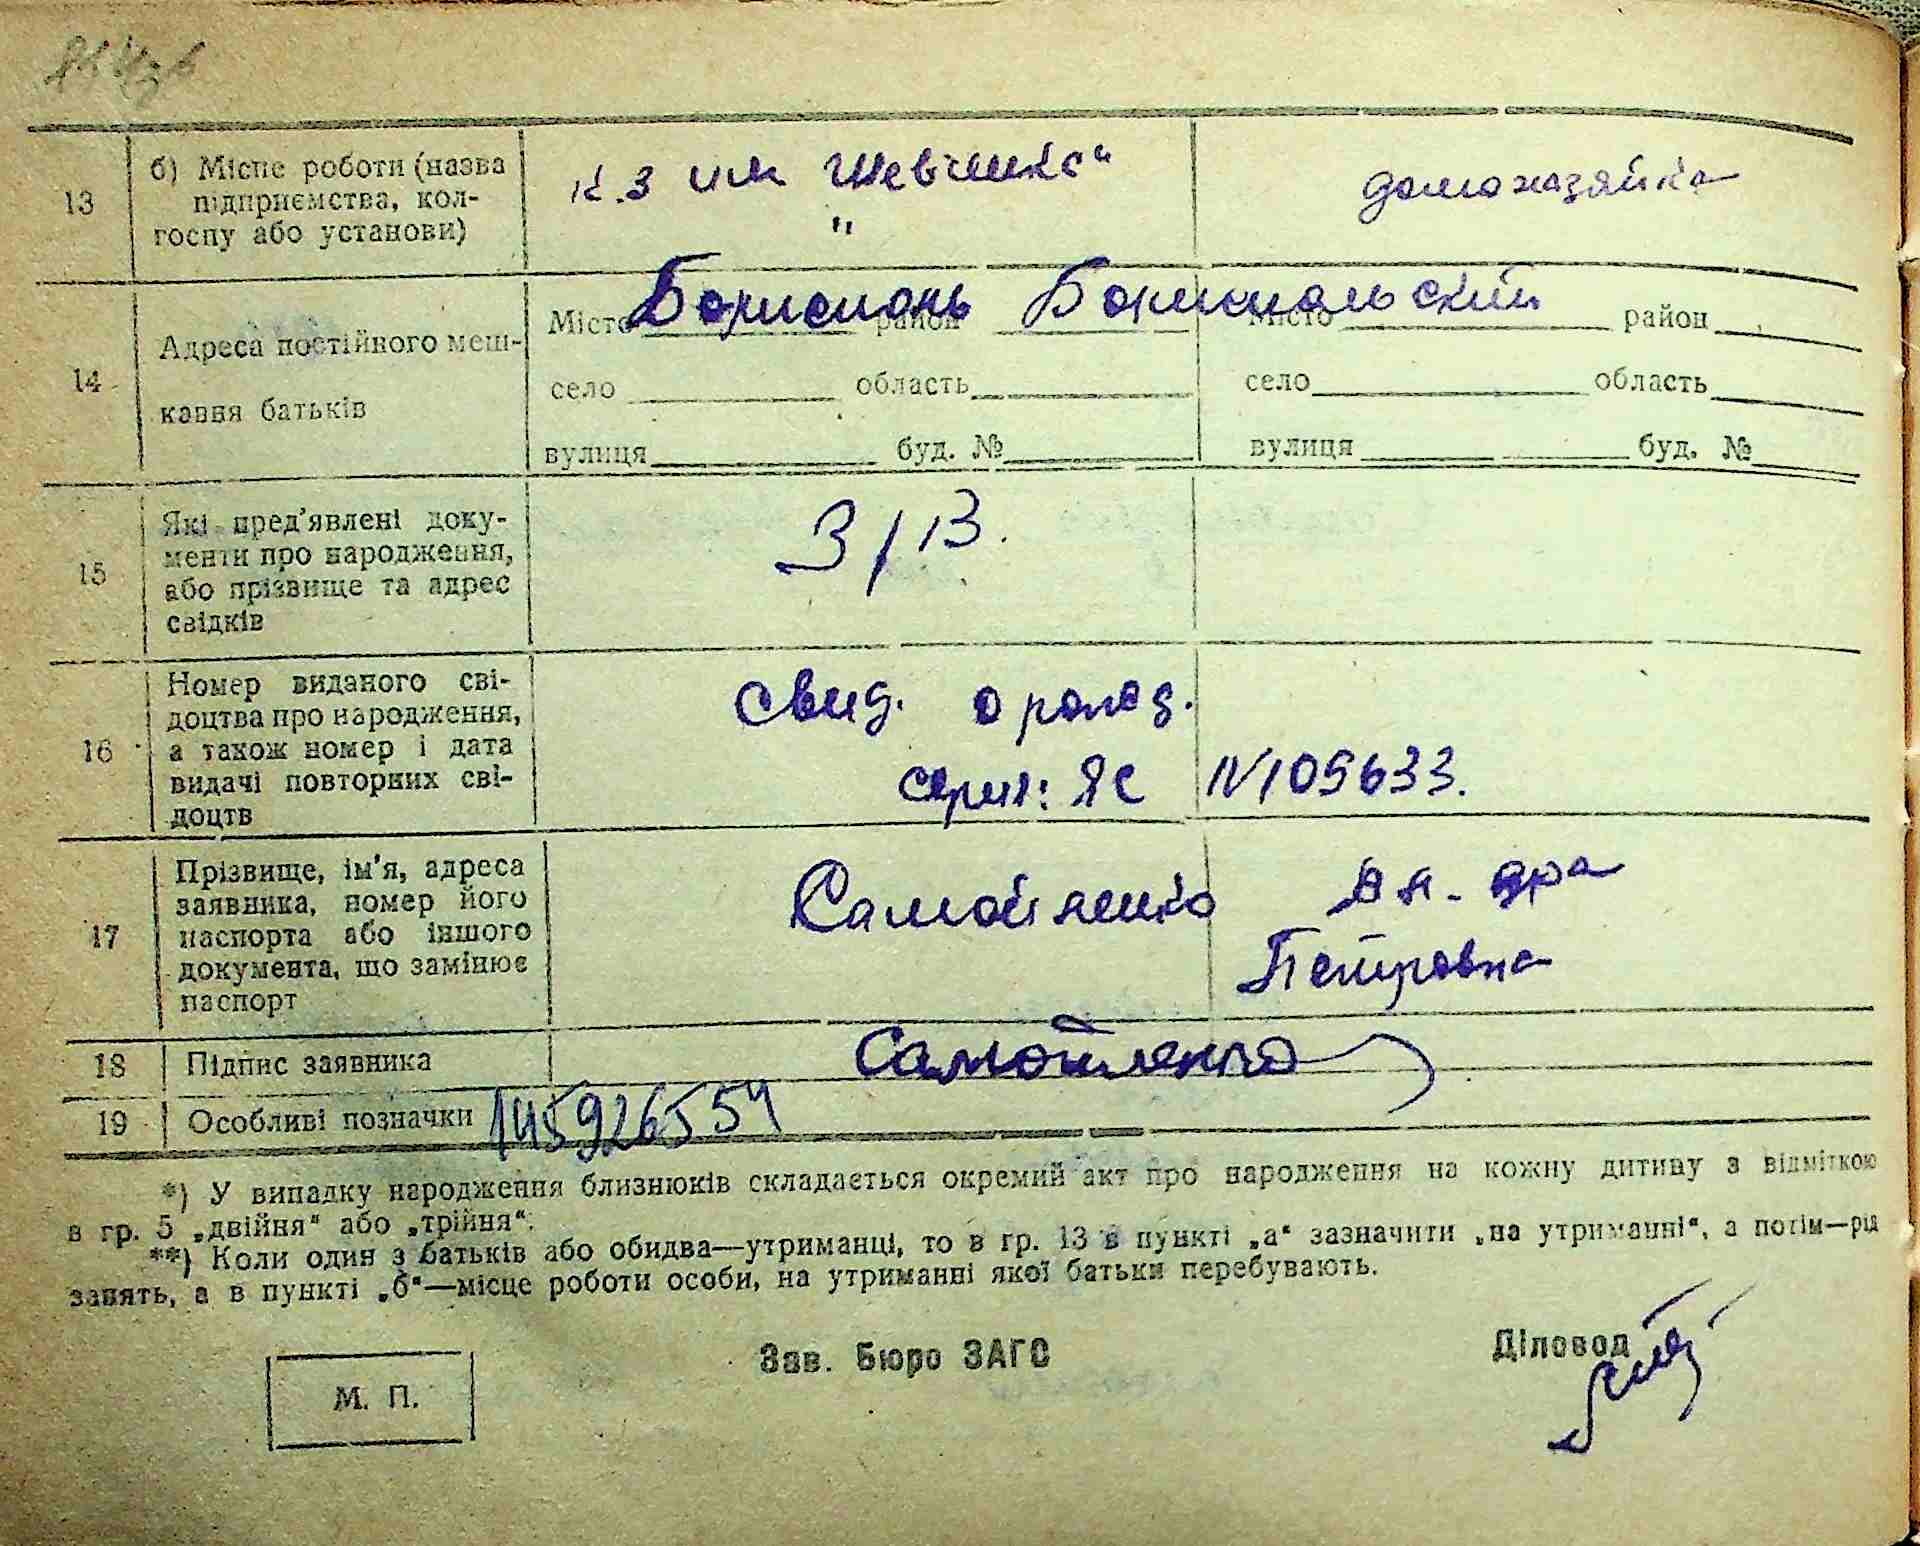 13
б) Місце роботи (назва
підприємства, кол-
госпу або установи)
к.з им Шевченко"
"
домохазяйка
14
Адреса постійного меш-
кання батьків
Місто район
Бориспонь Бориспольский
Місто район
село область
село область
вулиця буд. №
вулиця буд. №
15
Які пред'явлені доку-
менти про народження,
або прізвище та адрес
свідків
3/13.
16
Номер виданого сві-
доцтва про народження,
а також номер і дата
видачі повторних сві-
доцтв
Свид. о рожд.
серия: ЯС N109633.
17
Прізвище, ім'я, адреса
заявника, номер його
паспорта або іншого
документа, що замінює
паспорт
Самойленко
Петровна
18
Підпис заявника
Самойленко
19
Особливі позначки
145926554
*) У випадку народження близнюків складається окремий акт про народження на кожну дитину з відміткою
в гр. 5 „двійня" або „трійня".
**) Коли один з батьків або обидва—утриманці, то в гр. 13 в пункті „а" зазначити „на утриманні", а потім—рід
занять, а в пункті „б"—місце роботи особи, на утриманні якої батьки перебувають.
М. П.
Зав. Бюро ЗАГС
Діловод